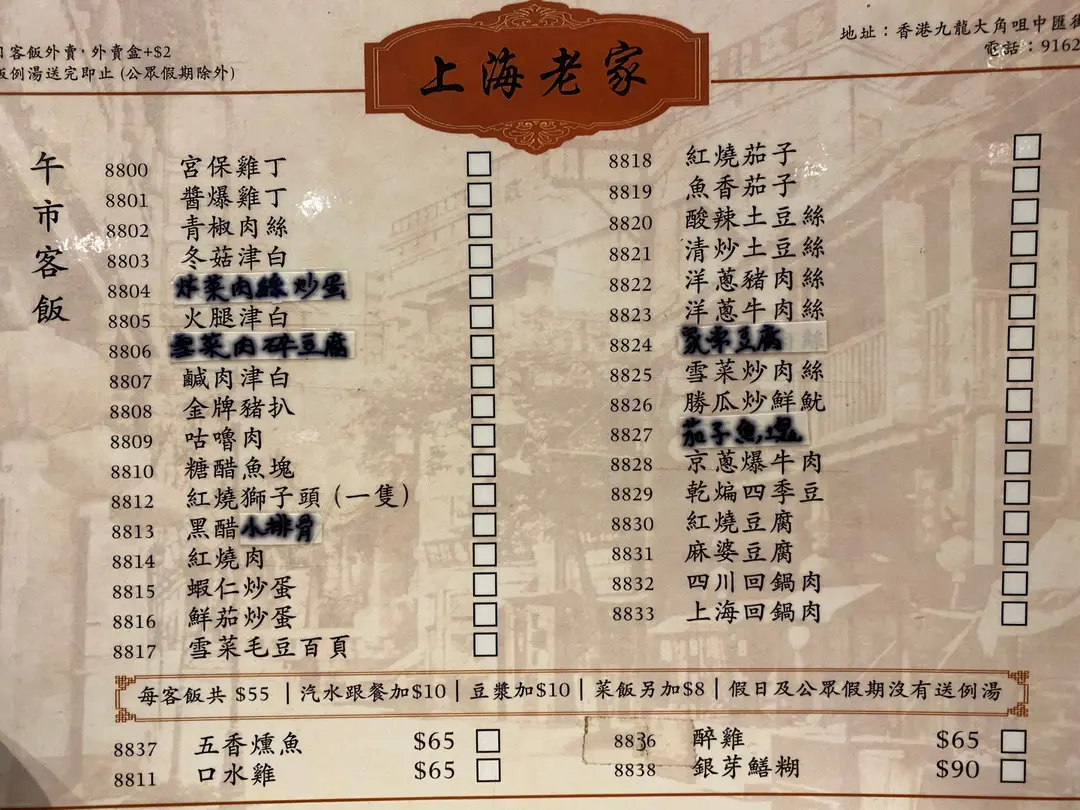 客飯外賣，外賣盒+$2
例湯送完即止 (公眾假期除外)
上海老家
地址：香港九龍大角咀中匯街
電話：9162
午市客飯
8800 宮保雞丁
8801 醬爆雞丁
8802 青椒肉絲
8803 冬菇津白
8804 炸菜肉絲炒蛋
8805 火腿津白
8806 雪菜肉碎豆腐
8807 鹹肉津白
8808 金牌豬扒
8809 咕嚕肉
8810 糖醋魚塊
8812 紅燒獅子頭 (一隻)
8813 黑醋小排骨
8814 紅燒肉
8815 蝦仁炒蛋
8816 鮮茄炒蛋
8817 雪菜毛豆百頁
8818 紅燒茄子
8819 魚香茄子
8820 酸辣土豆絲
8821 清炒土豆絲
8822 洋蔥豬肉絲
8823 洋蔥牛肉絲
8824 家常豆腐
8825 雪菜炒肉絲
8826 勝瓜炒鮮魷
8827 茄子魚塊
8828 京蔥爆牛肉
8829 乾煸四季豆
8830 紅燒豆腐
8831 麻婆豆腐
8832 四川回鍋肉
8833 上海回鍋肉
每客飯共 $55 | 汽水跟餐加$10 | 豆漿加$10 | 菜飯另加$8 | 假日及公眾假期沒有送例湯
8837 五香燻魚 $65
8811 口水雞 $65
8836 醉雞 $65
8838 銀芽鱔糊 $90